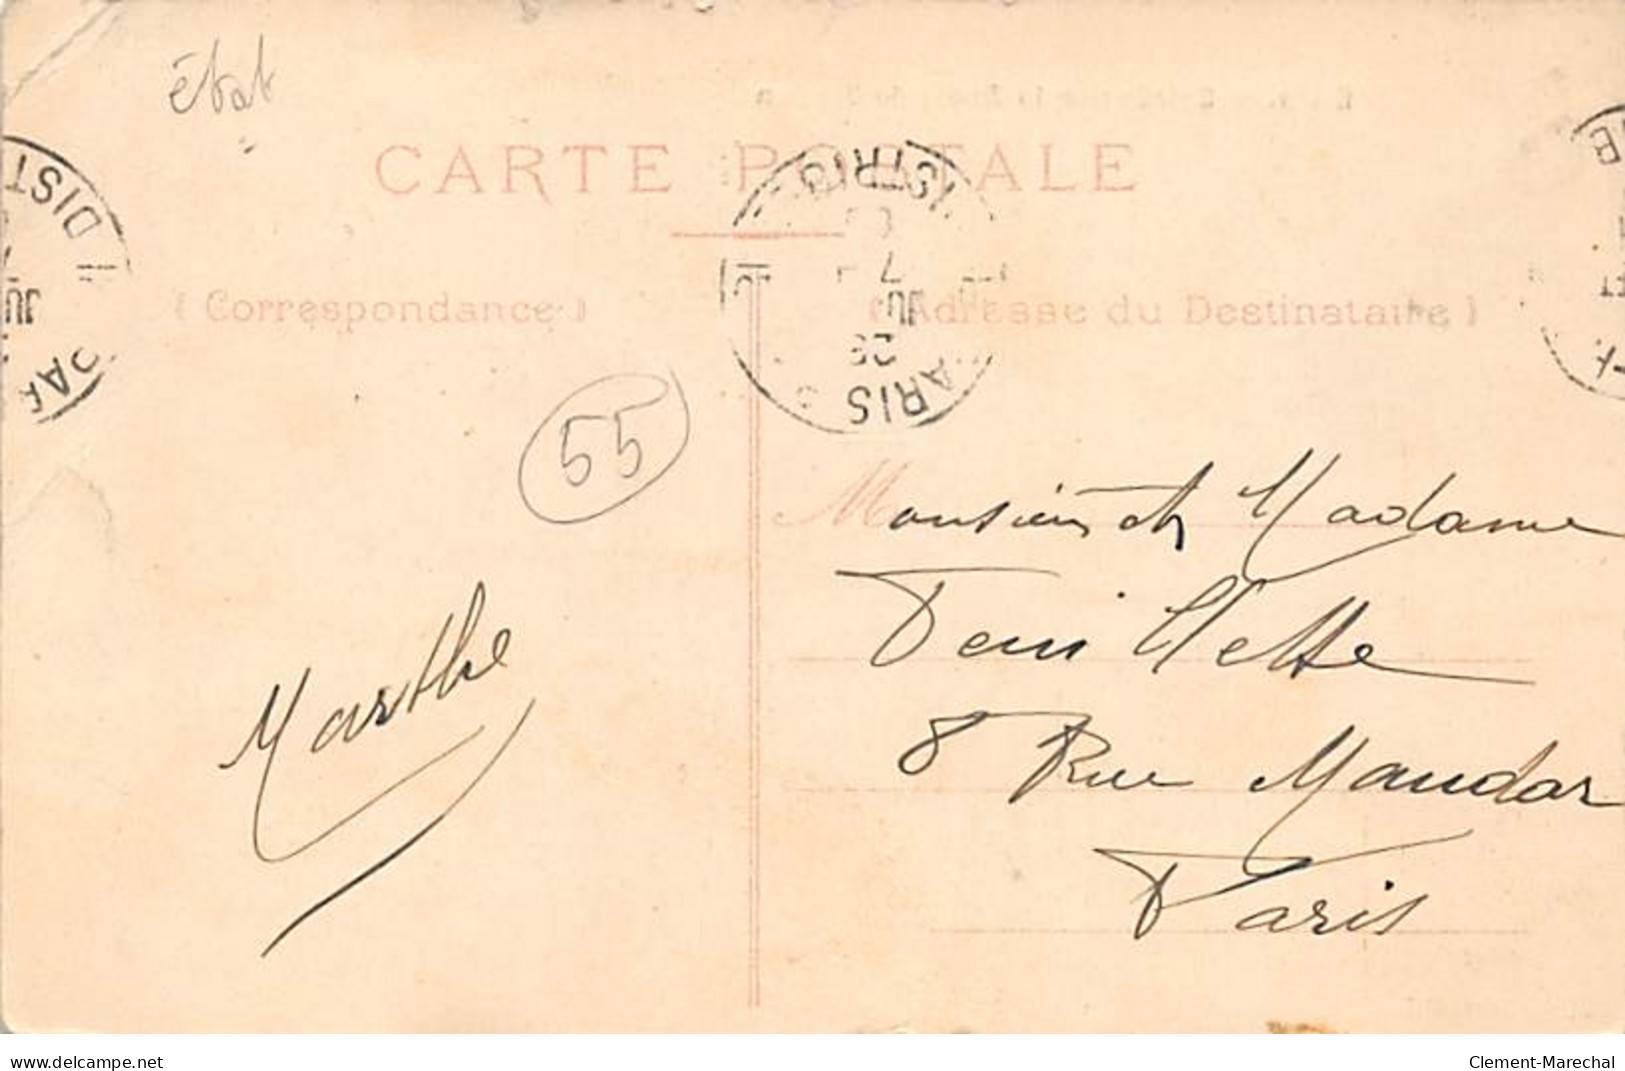 état
CARTE POSTALE
( Correspondance )
( Adresse du Destinataire )
PARIS DISTRIB
7
JU
PARIS
55
Monsieur et Madame
8 Rue Mandar
Paris
Marthe
www.delcampe.net
Clement-Marechal